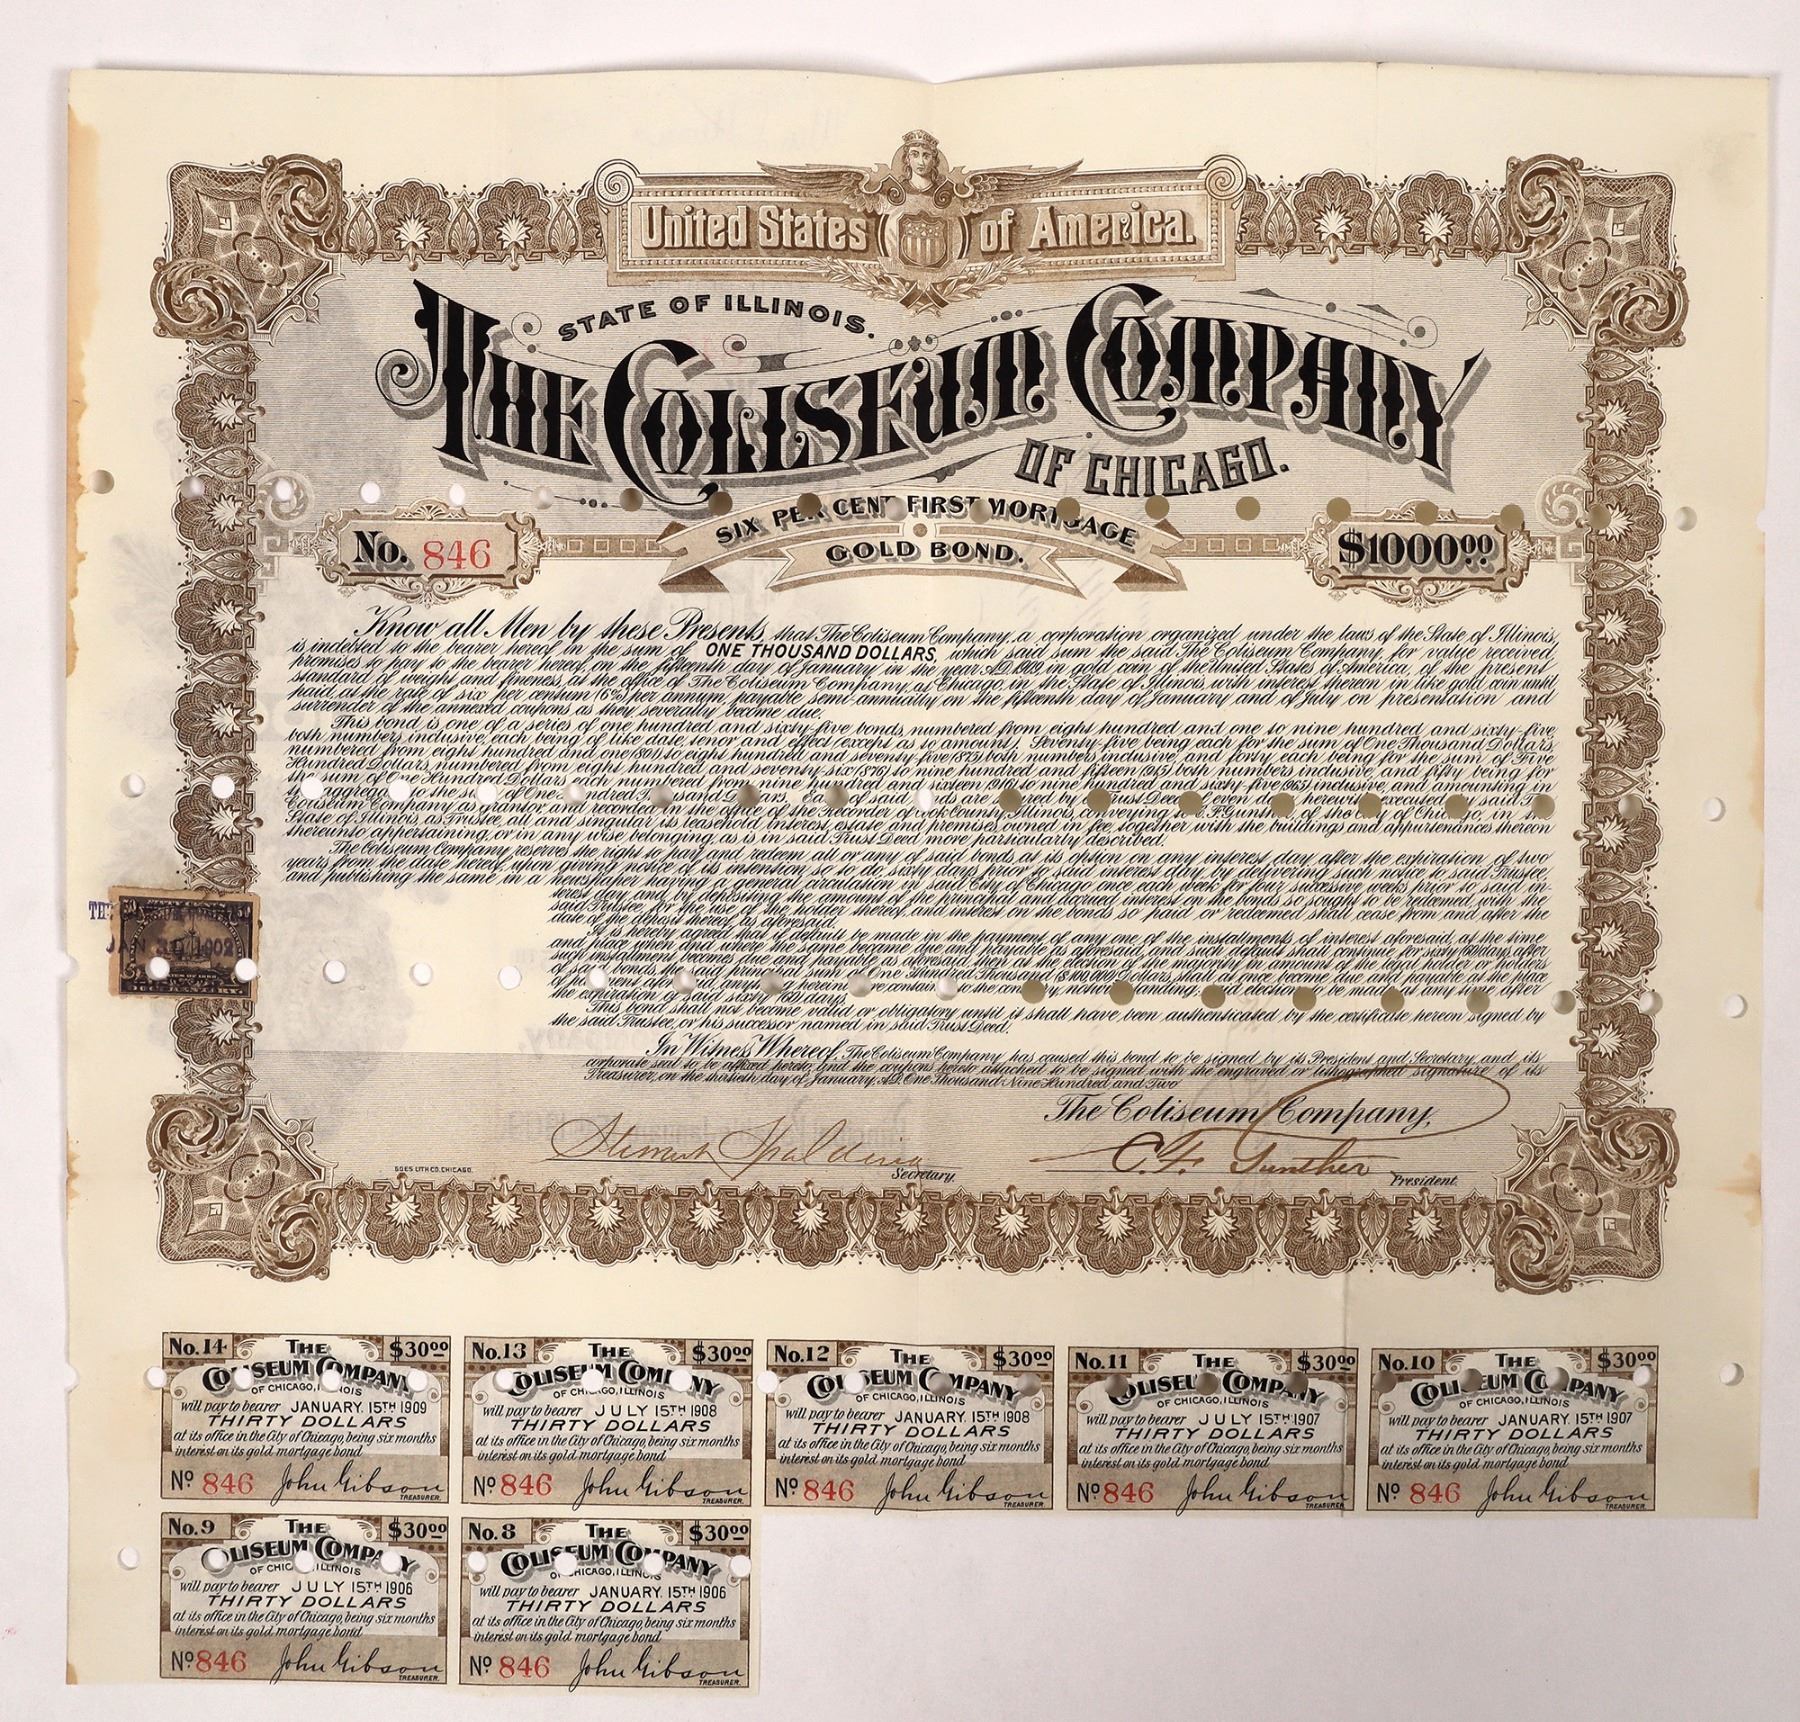 United States of America.
STATE OF ILLINOIS.
THE COLISEUM COMPANY
OF CHICAGO.
SIX PER CENT FIRST MORTGAGE
GOLD BOND.
No. 846
$1000.00
Know all Men by these Presents, that The Coliseum Company, a corporation organized under the laws of the State of Illinois,
is indebted to the bearer hereof in the sum of ONE THOUSAND DOLLARS, which said sum the said The Coliseum Company, for value received,
promises to pay to the bearer hereof, on the fifteenth day of January in the year A.D. 1909, in gold coin of the United States of America, of the present
standard of weight and fineness, at the office of The Coliseum Company, at Chicago, in the State of Illinois, with interest thereon in like gold coin until
paid, at the rate of six per centum (6%) per annum, payable semi-annually on the fifteenth day of January and of July on presentation and
surrender of the annexed coupons as they severally become due.
This bond is one of a series of one hundred and sixty-five bonds, numbered from eight hundred and one to nine hundred and sixty-five,
both numbers inclusive, each being of like date, tenor and effect (except as to amount). Seventy-five being each for the sum of One Thousand Dollars,
numbered from eight hundred and one (801) to eight hundred and seventy-five (875) both numbers inclusive, and forty each being for the sum of Five
Hundred Dollars, numbered from eight hundred and seventy-six (876) to nine hundred and fifteen (915) both numbers inclusive, and fifty being for
the sum of One Hundred Dollars each, numbered from nine hundred and sixteen (916) to nine hundred and sixty-five (965) inclusive, and amounting in
the aggregate to the sum of One Hundred Thousand Dollars. Each of said bonds are secured by a Trust Deed of even date herewith executed by said The
Coliseum Company as grantor, and recorded in the office of the Recorder of Cook County, Illinois, conveying to C. F. Gunther, of the City of Chicago, in the
State of Illinois, as Trustee, all and singular its leasehold interest, estate and premises owned in fee, together with the buildings and appurtenances thereon
thereunto appertaining, or in any wise belonging, as is in said Trust Deed more particularly described.
The Coliseum Company reserves the right to pay and redeem all or any of said bonds, at its option on any interest day after the expiration of two
years from the date hereof, upon giving notice of its intention so to do, sixty days prior to said interest day by delivering such notice to said Trustee,
and publishing the same in a newspaper having a general circulation in said City of Chicago once each week for four successive weeks prior to said in-
terest day, and by depositing the amount of the principal and accrued interest on the bonds so sought to be redeemed with the
said Trustee, for the use of the holder thereof, and interest on the bonds so paid or redeemed shall cease from and after the
date of the deposit thereof, as aforesaid.
It is hereby agreed that if default be made in the payment of any one of the installments of interest aforesaid, at the time
and place when and where the same became due and payable as aforesaid, and such default shall continue for sixty (60) days after
such installment becomes due and payable as aforesaid, then at the election of the majority in amount of the legal holder or holders
of said bonds, the said principal sum of One Hundred Thousand ($100,000) Dollars, shall at once become due and payable at the place
of payment aforesaid, anything herein before contained to the contrary, notwithstanding, said election to be made at any time after
the expiration of said sixty (60) days.
This bond shall not become valid or obligatory until it shall have been authenticated by the certificate hereon signed by
the said Trustee, or his successor named in said Trust Deed.
In Witness Whereof, The Coliseum Company has caused this bond to be signed by its President and Secretary, and its
corporate seal to be affixed hereto, and the coupons hereto attached to be signed with the engraved or lithographed signature of its
Treasurer, on the thirtieth day of January, A.D. One Thousand Nine Hundred and Two
The Coliseum Company,
Stewart Spalding
Secretary.
C. F. Gunther
President.
GOES LITH. CO. CHICAGO.
JAN 30 1902
No. 14 THE $30.00
COLISEUM COMPANY
OF CHICAGO, ILLINOIS
will pay to bearer JANUARY. 15TH 1909
THIRTY DOLLARS
at its office in the City of Chicago, being six months
interest on its gold mortgage bond
No 846 John Gibson
TREASURER.
No. 13 THE $30.00
COLISEUM COMPANY
OF CHICAGO, ILLINOIS
will pay to bearer JULY 15TH 1908
THIRTY DOLLARS
at its office in the City of Chicago, being six months
interest on its gold mortgage bond
No 846 John Gibson
TREASURER.
No. 12 THE $30.00
COLISEUM COMPANY
OF CHICAGO, ILLINOIS
will pay to bearer JANUARY. 15TH 1908
THIRTY DOLLARS
at its office in the City of Chicago, being six months
interest on its gold mortgage bond
No 846 John Gibson
TREASURER.
No. 11 THE $30.00
COLISEUM COMPANY
OF CHICAGO, ILLINOIS
will pay to bearer JULY 15TH 1907
THIRTY DOLLARS
at its office in the City of Chicago, being six months
interest on its gold mortgage bond
No 846 John Gibson
TREASURER.
No. 10 THE $30.00
COLISEUM COMPANY
OF CHICAGO, ILLINOIS
will pay to bearer JANUARY. 15TH 1907
THIRTY DOLLARS
at its office in the City of Chicago, being six months
interest on its gold mortgage bond
No 846 John Gibson
TREASURER.
No. 9 THE $30.00
COLISEUM COMPANY
OF CHICAGO, ILLINOIS
will pay to bearer JULY 15TH 1906
THIRTY DOLLARS
at its office in the City of Chicago, being six months
interest on its gold mortgage bond
No 846 John Gibson
TREASURER.
No. 8 THE $30.00
COLISEUM COMPANY
OF CHICAGO, ILLINOIS
will pay to bearer JANUARY. 15TH 1906
THIRTY DOLLARS
at its office in the City of Chicago, being six months
interest on its gold mortgage bond
No 846 John Gibson
TREASURER.